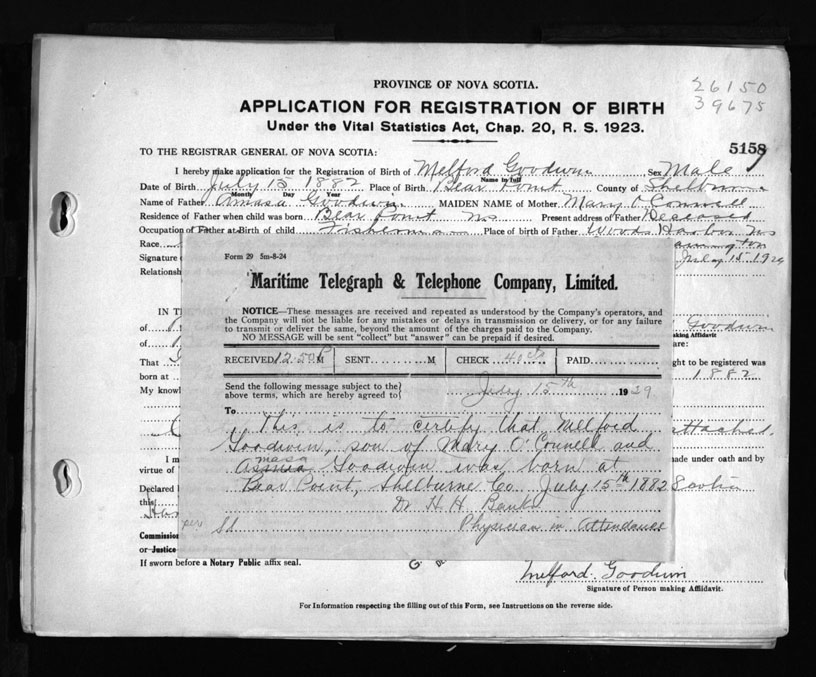 PROVINCE OF NOVA SCOTIA.
26150
39675
APPLICATION FOR REGISTRATION OF BIRTH
Under the Vital Statistics Act, Chap. 20, R. S. 1923.
5158
TO THE REGISTRAR GENERAL OF NOVA SCOTIA:
I hereby make application for the Registration of Birth of Melford Goodwin Sex Male
Name in full
Date of Birth July 15 1882 Place of Birth Bear Point County of Shelburne
Month Day Year
Name of Father Amasa Goodwin MAIDEN NAME of Mother Mary O'Connell
Residence of Father when child was born Bear Point NS Present address of Father Deceased
Occupation of Father at Birth of child Fisherman Place of birth of Father Woods Harbor NS
Race
Signature July 15 1929
Relationsh
Form 29 5m-8-24
Maritime Telegraph & Telephone Company, Limited.
NOTICE—These messages are received and repeated as understood by the Company's operators, and
the Company will not be liable for any mistakes or delays in transmission or delivery, or for any failure
to transmit or deliver the same, beyond the amount of the charges paid to the Company.
NO MESSAGE will be sent "collect" but "answer" can be prepaid if desired.
RECEIVED 12.50 P M SENT M CHECK PAID
Send the following message subject to the
above terms, which are hereby agreed to
July 15th 1929
To
This is to certify that Mellford
Goodwin, son of Mary O'Connell and
masa
Goodwin was born at
Bear Point, Shelburne Co July 15th 1882
Dr H. H. Banks
Physician in Attendance
IN THE
of Goodwin
making Affidavit
of are:
That ght to be registered was
born at 1882
My knowl
attached
I m made under oath and by
virtue of
Declared
this
Commission
or Justice
If sworn before a Notary Public affix seal.
Melford Goodwin
Signature of Person making Affidavit.
For Information respecting the filling out of this Form, see Instructions on the reverse side.